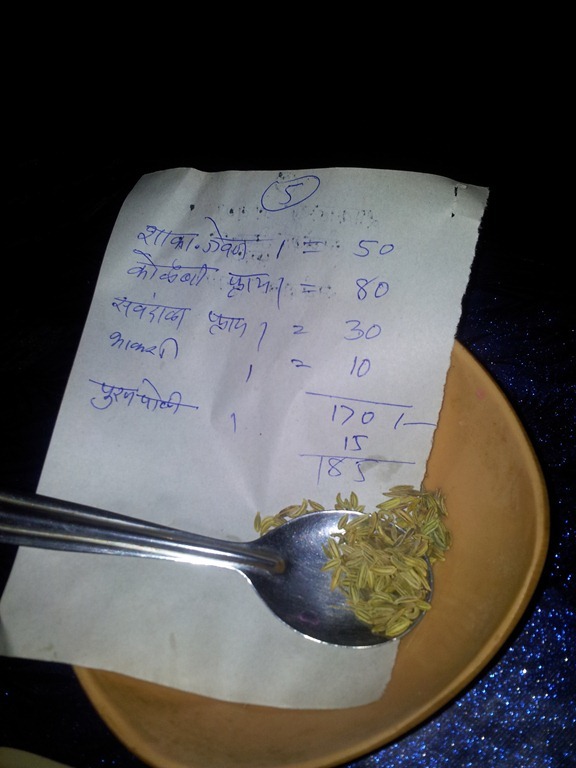 5
शाका. जेवण 1 = 50
कोळंबी फ्राय 1 = 80
फ्राय 1 = 30
भाकरी 1 = 10
पुरणपोळी 1
170/-
15
185